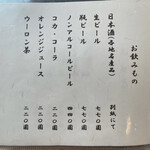 お飲みもの
日本酒(各地名産品) 別紙にて
生ビール 七七〇円
瓶ビール 七七〇円
ノンアルコールビール 四四〇円
コカ・コーラ 二二〇円
オレンジジュース 二二〇円
ウーロン茶 二二〇円